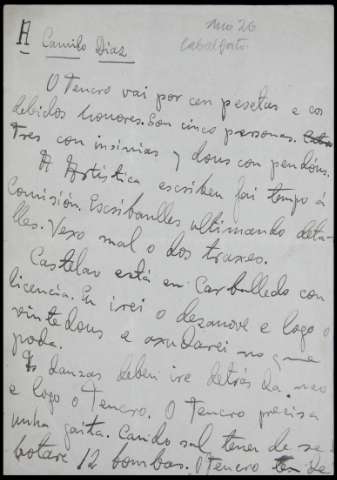 Nov 26
Cabalforte
A Camilo Diaz
O Tencro vai por cen pesetas e cos
debidos honores. Son cinco persoas.
Tres con insinias y dous con pendóns.
A Artística escriben fai tempo á
Comisión. Escribanlles ultimando deta-
lles. Vexo mal o dos traxes.
Castelao está en Carballedo con
licencia. Eu irei o dezanove e logo o
vintedous e axudarei no que
poda.
As danzas deben ire detrás da nao
e logo o Tencro. O Tencro precisa
unha gaita. Cando sal tener de se
botare 12 bombas. O Tencro de